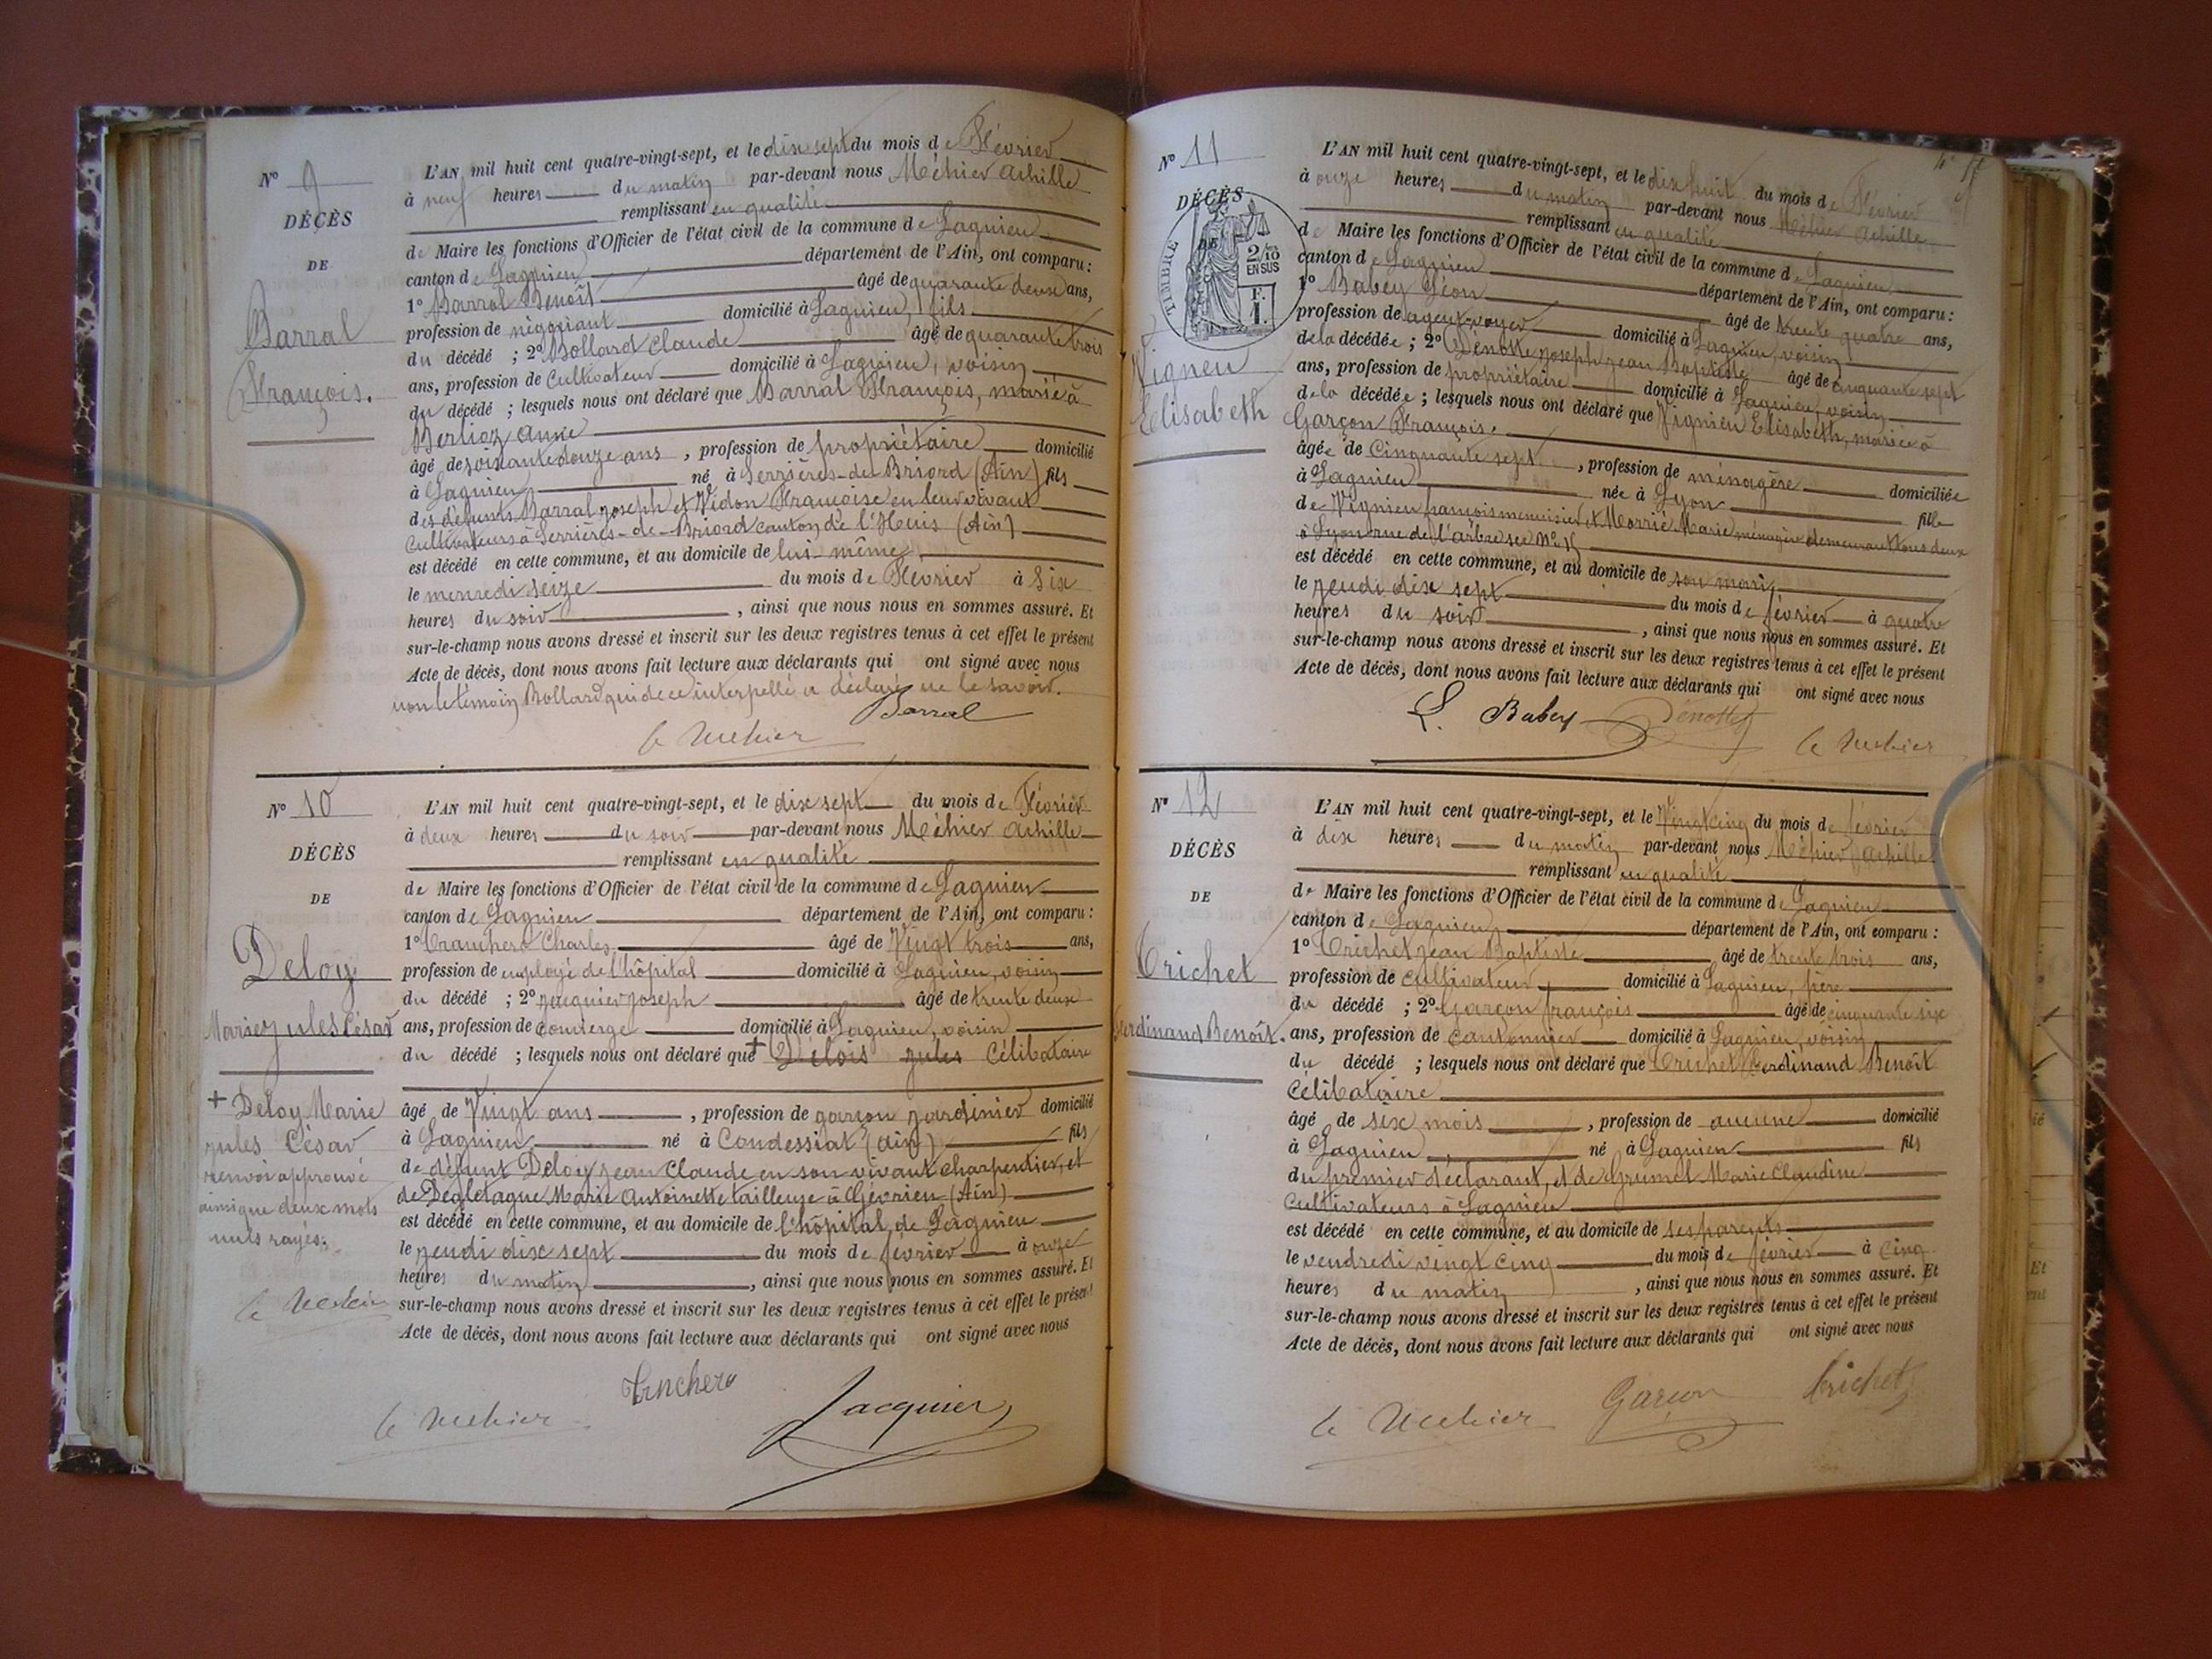 N° 9
DÉCÈS
DE
Barral
François.
L'AN mil huit cent quatre-vingt-sept, et le dix sept du mois de Février
à neuf heures du matin par-devant nous Méhier Achille
remplissant en qualité
de Maire les fonctions d'Officier de l'état civil de la commune de Lagnieu
canton de Lagnieu département de l'Ain, ont comparu :
1° Barral Benoît âgé de quarante deux ans,
profession de négociant domicilié à Lagnieu, fils
du décédé ; 2° Bollard Claude âgé de quarante trois
ans, profession de Cultivateur domicilié à Lagnieu, voisin
du décédé ; lesquels nous ont déclaré que Barral François, marié à
Berlioz Anne
âgé de soixante douze ans , profession de propriétaire domicilié
à Lagnieu né à Serrières-de-Briord (Ain) fils
des défunts Barral Joseph et Vidon Françoise en leur vivant
Cultivateurs à Serrières-de-Briord canton de l'Huis (Ain)
est décédé en cette commune, et au domicile de lui-même
le mercredi seize du mois de Février à six
heures du soir , ainsi que nous nous en sommes assuré. Et
sur-le-champ nous avons dressé et inscrit sur les deux registres tenus à cet effet le présent
Acte de décès, dont nous avons fait lecture aux déclarants qui ont signé avec nous
non le témoin Bollard qui de ce interpellé a déclaré ne le savoir.
Barral
N° 10
DÉCÈS
DE
Deloy
Marie Jules César
+ Deloy Marie
Jules César
renvoi approuvé
ainsi que deux mots
nuls rayés.
L'AN mil huit cent quatre-vingt-sept, et le dix sept du mois de Février
à deux heures du soir par-devant nous Méhier Achille
remplissant en qualité
de Maire les fonctions d'Officier de l'état civil de la commune de Lagnieu
canton de Lagnieu département de l'Ain, ont comparu :
1° Charles âgé de Vingt trois ans,
profession de employé de l'hôpital domicilié à Lagnieu, voisin
du décédé ; 2° Jacquier Joseph âgé de trente deux
ans, profession de Concierge domicilié à Lagnieu, voisin
du décédé ; lesquels nous ont déclaré que + Delois Jules Célibataire
âgé de Vingt ans , profession de garçon jardinier domicilié
à Lagnieu né à Condessiat (Ain) fils
de défunt Deloy Jean Claude en son vivant charpentier, et
de Degletagne Marie Antoinette tailleuse à Gévrieu (Ain)
est décédé en cette commune, et au domicile de l'hôpital de Lagnieu
le jeudi dix sept du mois de février à onze
heures du matin , ainsi que nous nous en sommes assuré. Et
sur-le-champ nous avons dressé et inscrit sur les deux registres tenus à cet effet le présent
Acte de décès, dont nous avons fait lecture aux déclarants qui ont signé avec nous
Jacquier
N° 11
DÉCÈS
DE
TIMBRE
2/10
EN SUS
F.
1.
Vignieu
Elisabeth
L'AN mil huit cent quatre-vingt-sept, et le dix huit du mois de Février
à onze heures du matin par-devant nous Méhier Achille
remplissant en qualité
de Maire les fonctions d'Officier de l'état civil de la commune de Lagnieu
canton de Lagnieu département de l'Ain, ont comparu :
1° Babey Léon âgé de trente quatre ans,
profession de agent-voyer domicilié à Lagnieu, voisin
de la décédée ; 2° Dénotte Joseph Jean Baptiste âgé de cinquante sept
ans, profession de propriétaire domicilié à Lagnieu, voisin
de la décédée ; lesquels nous ont déclaré que Vignieu Elisabeth, mariée à
Garçon François.
âgée de Cinquante sept , profession de ménagère domiciliée
à Lagnieu née à Lyon fille
de Vignieu françois menuisier et Marie ménagère demeurant tous deux
à Lyon rue de l'arbre sec N°
est décédé en cette commune, et au domicile de son mari
le jeudi dix sept du mois de février à quatre
heures du soir , ainsi que nous nous en sommes assuré. Et
sur-le-champ nous avons dressé et inscrit sur les deux registres tenus à cet effet le présent
Acte de décès, dont nous avons fait lecture aux déclarants qui ont signé avec nous
L. Babey
N° 12
DÉCÈS
DE
Crichet
Ferdinand Benoît.
L'AN mil huit cent quatre-vingt-sept, et le Vingt cinq du mois de février
à dix heures du matin par-devant nous Méhier Achille
remplissant en qualité
de Maire les fonctions d'Officier de l'état civil de la commune de Lagnieu
canton de Lagnieu département de l'Ain, ont comparu :
1° Crichet Jean Baptiste âgé de trente trois ans,
profession de cultivateur domicilié à Lagnieu, père
du décédé ; 2° Garçon françois âgé de cinquante six
ans, profession de cantonnier domicilié à Lagnieu, voisin
du décédé ; lesquels nous ont déclaré que Crichet Ferdinand Benoît
Célibataire
âgé de six mois , profession de aucune domicilié
à Lagnieu né à Lagnieu fils
du premier déclarant, et de Grumel Marie Claudine
Cultivateurs à Lagnieu
est décédé en cette commune, et au domicile de ses parents
le vendredi vingt cinq du mois de février à cinq
heures du matin , ainsi que nous nous en sommes assuré. Et
sur-le-champ nous avons dressé et inscrit sur les deux registres tenus à cet effet le présent
Acte de décès, dont nous avons fait lecture aux déclarants qui ont signé avec nous
Garçon
Crichet